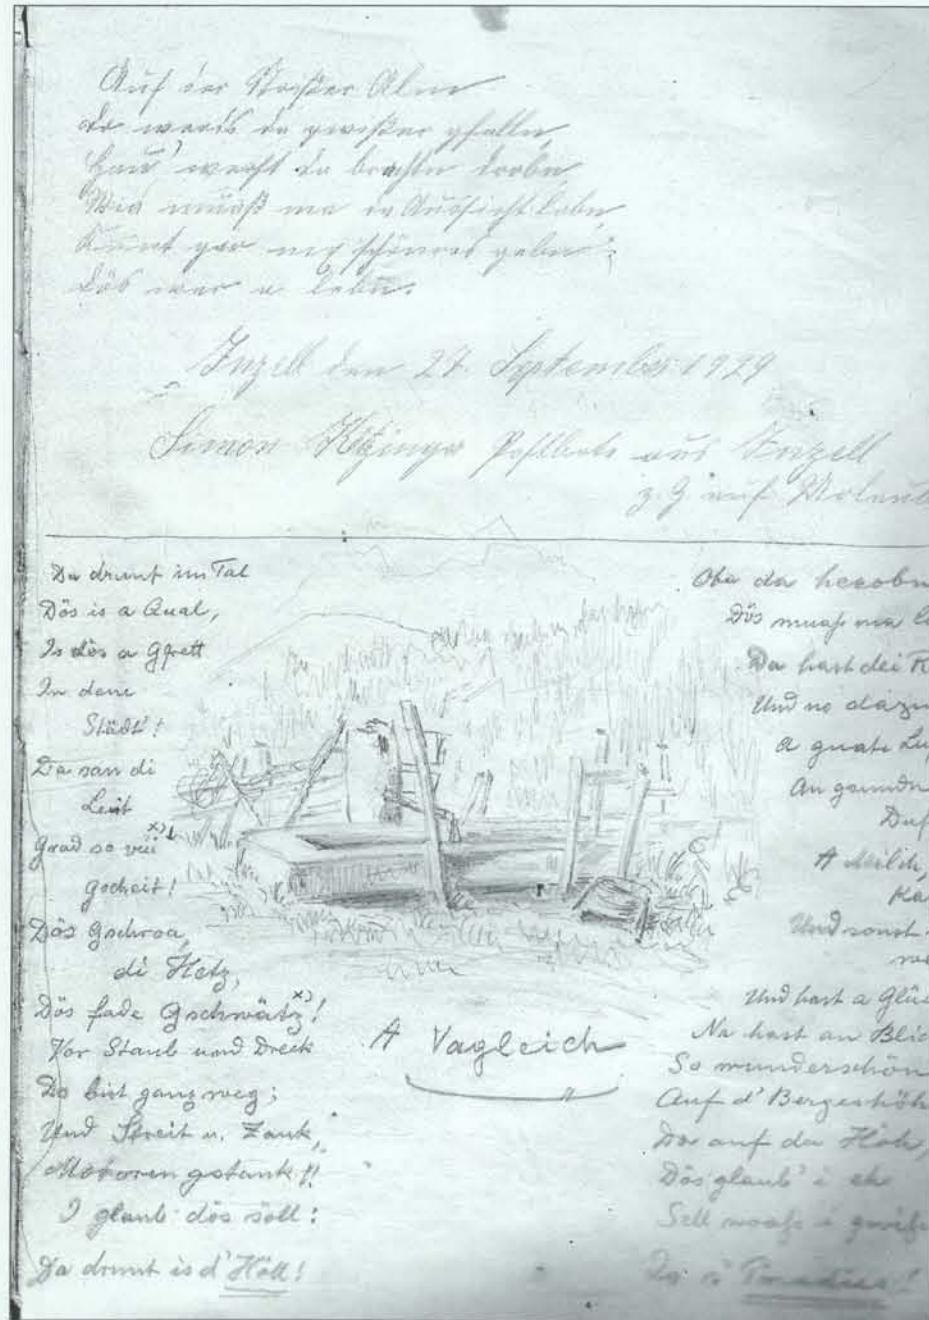 Auf der Stoißer Alm
do werds da gwißer gfalln,
drobn
Wia muaß ma de Aussicht lobn,
Kunnt gar nix schöners gebn;
Dös war a Lebn.
Inzell den 27. September 1929
Simon Postbote aus Inzell
z. Z. auf
Da drunt im Tal
Dös is a Qual,
Is dös a Gfrett
In dene
Städt!
Da san di
Leut
Grad so vui x)
gscheit!
Dös Gschroa,
di Hetz,
Dös fade Gschwätz x)!
Vor Staub und Dreck
Do bist ganz weg;
Und Streit u. Zank,
Motorengstank!!
I glaub dös söll:
Da drunt is d' Höll!
A Vagleich
Oba da herobn
Dös muaß ma l
Da hast dei R
Und no dazu
A guate Lu
An gsundn
Duf
A Milch,
Ka
Und sonst
no
Und hast a Glü
Na hast an Blic
So wunderschön
Auf d' Bergeshöh
Da auf da Höh,
Dös glaub' i eh
Sell woaß i gwiß
Is 's Paradies!